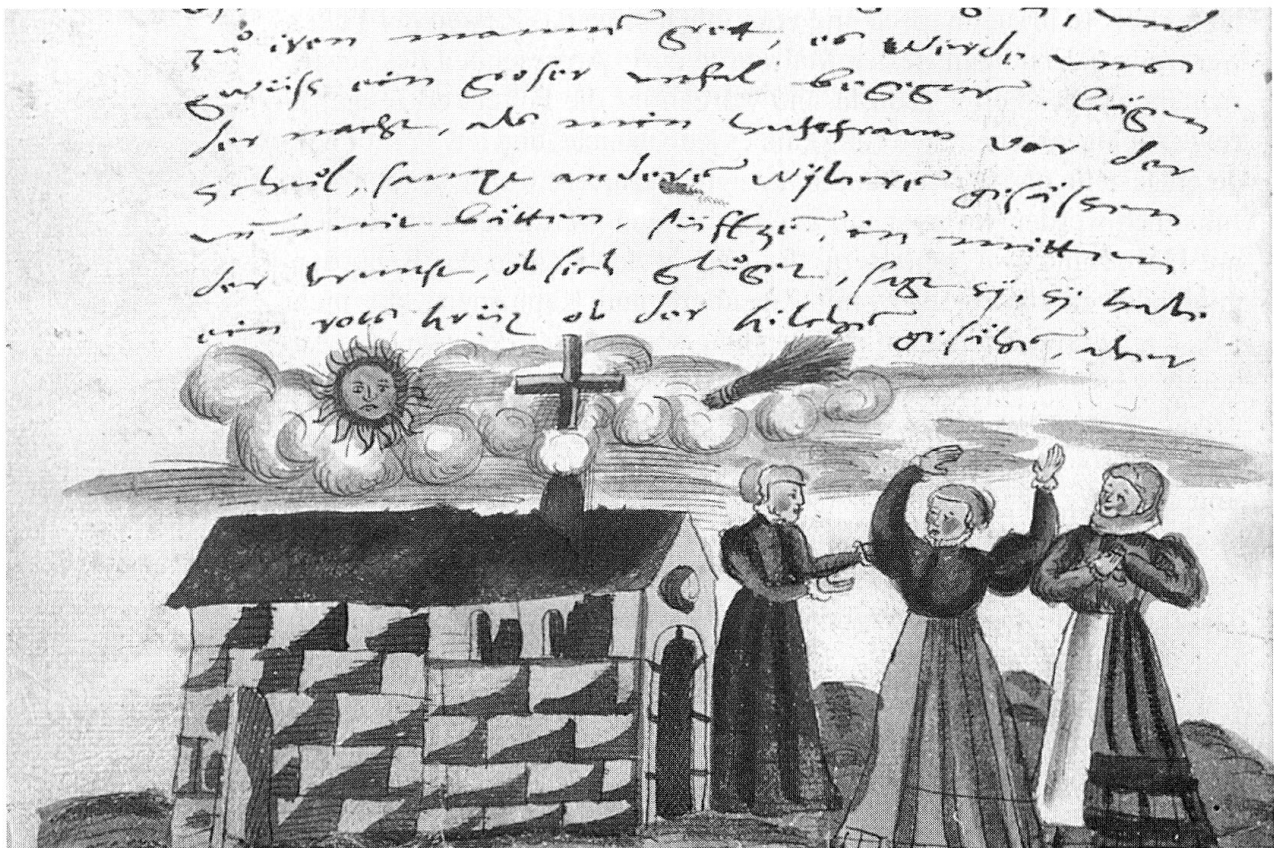 zuͦ iren mannē gret, es werde uns
gwüss ein groser unfal begegnē.
der nacht, als min husfrauw vor der
schuͦl, sampt anderē wyberē gesässen
und mit bätten, süffzē, in mitten
der brunst, ob sich gluͦget, sagt sy, sy habe
ein rots krüz ob der kilchē gesähē, aber